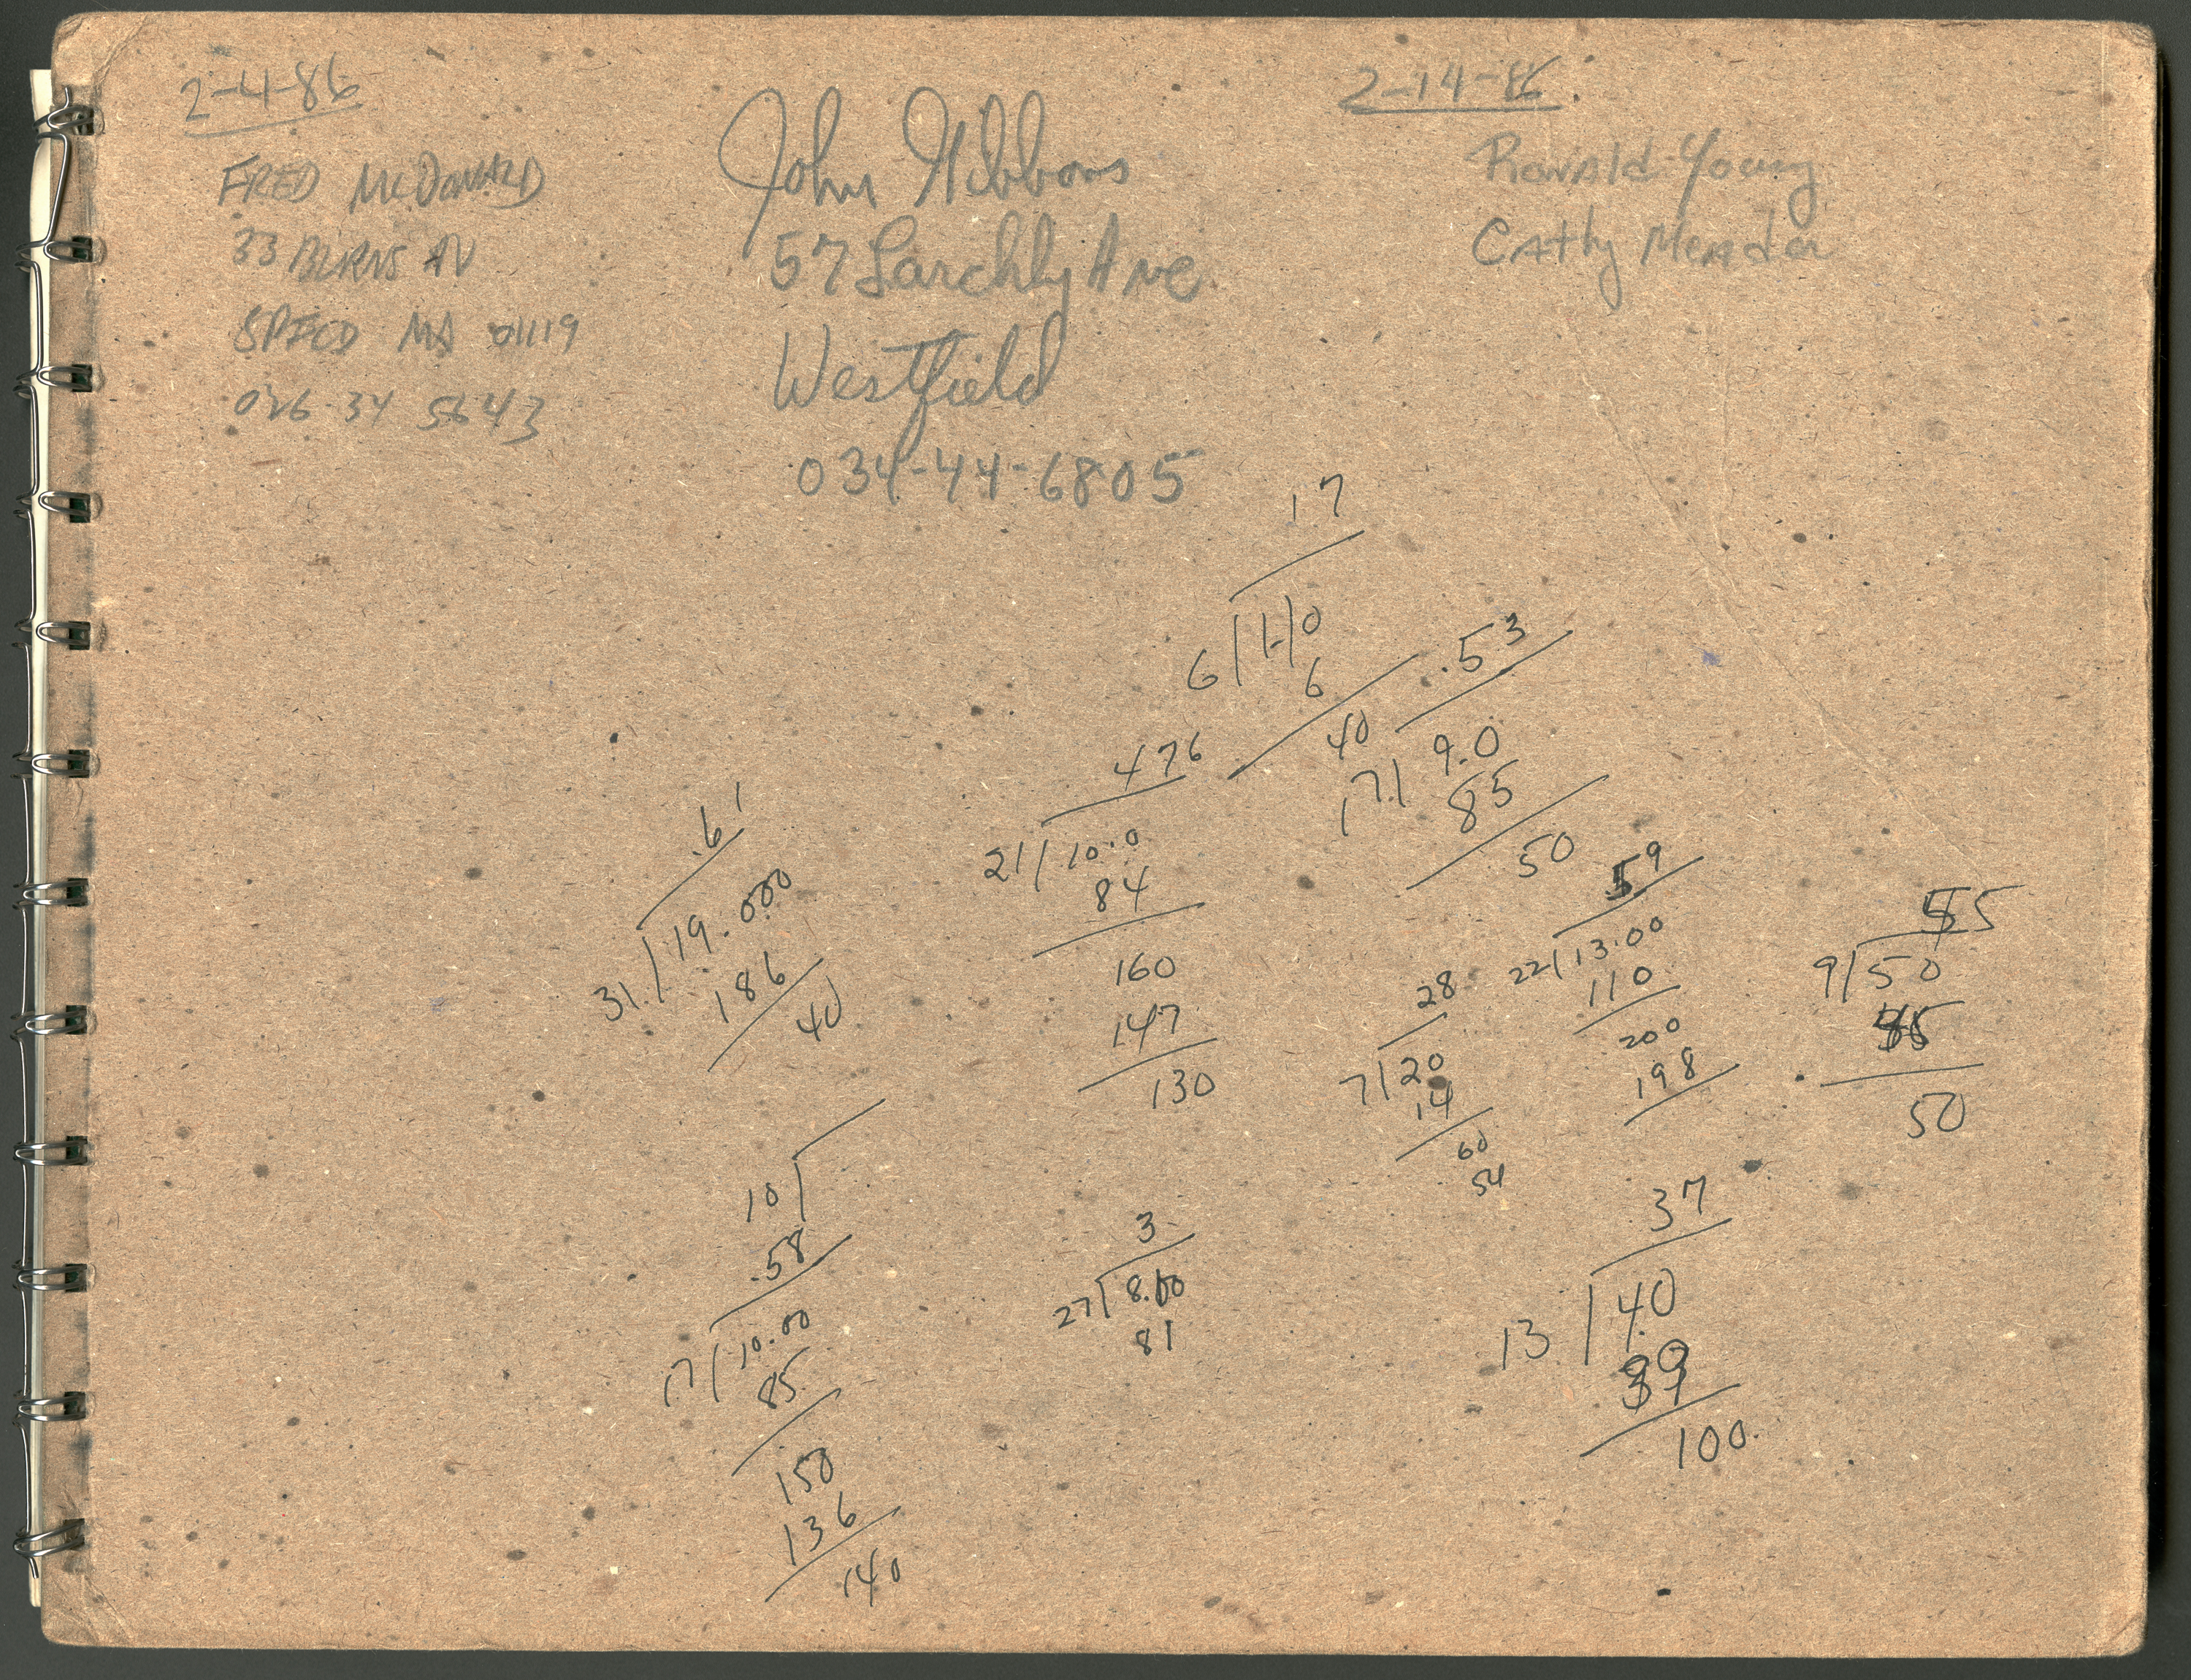 2-4-86
FRED McDONALD
33 BURNS AV
SPFCD MA 01119
026-34 5643
John Gibbons
57 Larchly Ave
Westfield
034-44-6805
2-14-86
Ronald Young
Cathy Meader
17
6 1.0
6
40
.53
17 9.0
85
50
476
21 10.0
84
160
147
130
.61
31 19.000
186
40
59
22 13.00
110
200
198
55
9 50
45
50
28
7 20
14
60
54
10
.58
17 10.00
85
150
136
140
3
27 8.00
81
37
13 40
39
100